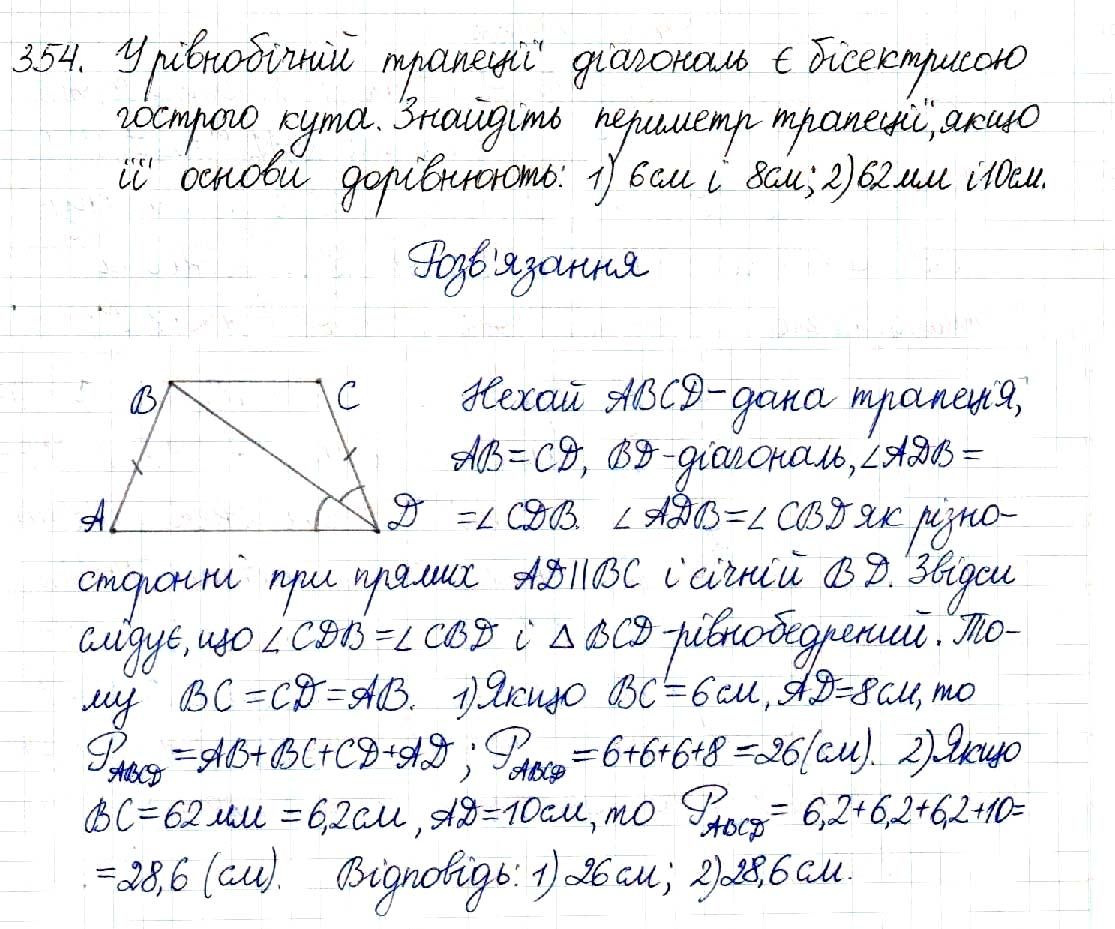 354. У рівнобічній трапеції діагональ є бісектрисою
гострого кута. Знайдіть периметр трапеції, якщо
її основи дорівнюють: 1) 6 см і 8 см; 2) 62 мм і 10 см.
Розв'язання
B C
A D
Нехай ABCD - дана трапеція,
AB = CD, BD - діагональ, ∠ADB =
= ∠CDB. ∠ADB = ∠CBD як різно-
сторонні при прямих AD || BC і січній BD. Звідси
слідує, що ∠CDB = ∠CBD і △ BCD - рівнобедрений. То-
му BC = CD = AB. 1) Якщо BC = 6 см, AD = 8 см, то
P_ABCD = AB + BC + CD + AD ; P_ABCD = 6+6+6+8 = 26 (см). 2) Якщо
BC = 62 мм = 6,2 см, AD = 10 см, то P_ABCD = 6,2+6,2+6,2+10 =
= 28,6 (см). Відповідь: 1) 26 см; 2) 28,6 см.